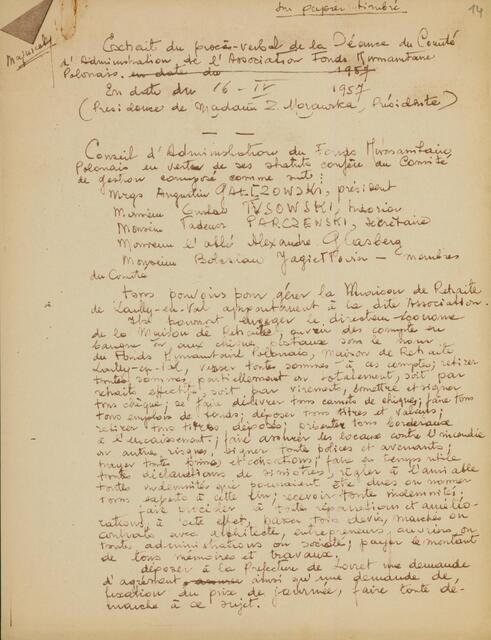 Sur papier timbré
14
Majuscules
Extrait du procès-verbal de la Séance du Comité
d'Administration de l'Association Fonds Humanitaire
Polonais en date du 1957
En date du 16 - IV 1957
(Présidence de Madame Z. Morawska, Présidente)
Conseil d'Administration du Fonds Humanitaire
Polonais en vertu de ses statuts confère au Comité
de gestion composé comme suit:
Mrgr Augustin GAŁĘZOWSKI, président
Monsieur Gustaw TYSOWSKI, trésorier
Monsieur Tadeusz PARCZEWSKI, secrétaire
Monsieur l'abbé Alexandre Glasberg
Monsieur Boleslaw – membres
du Comité
tous pouvoirs pour gérer la Maison de Retraite
de Lailly-en-Val appartenant à la dite Association.
Ils pourront engager le directeur-économe
de la Maison de Retraite, ouvrir des comptes en
banque ou aux chèques postaux sous le nom
du Fonds Humanitaire Polonais, Maison de Retraite
Lailly-en-Val, verser toutes sommes à ces comptes; retirer
toutes sommes, partiellement ou totalement, soit par
retraits effectifs, soit par virements, émettre et signer
tous chèques; se faire délivrer tous carnets de chèques; faire tous
tous emplois de fonds; déposer tous titres et valeurs;
retirer tous titres déposés; présenter tous bordereaux
à l'encaissement; faire assurer les locaux contre l'incendie
ou autres risques, signer toute polices et avenants;
payer toute primes et cotisations; faire en temps utile
toutes déclarations de sinistres, régler à l'amiable
toutes indemnités qui pourraient être dues ou nommer
tous experts à cette fin; recevoir toute indemnités;
faire procéder à toute réparations et amélio-
rations, à cette effet, passer tous devis, marchés ou
contrats avec architecte, entrepreneurs, ouvriers ou
toute administrations ou société; payer le montant
de tous mémoires et travaux.
déposer à la Préfecture de Loiret une demande
d'agrément ainsi qu'une demande de
fixation du prix de journée, faire toute dé-
marche à ce sujet.